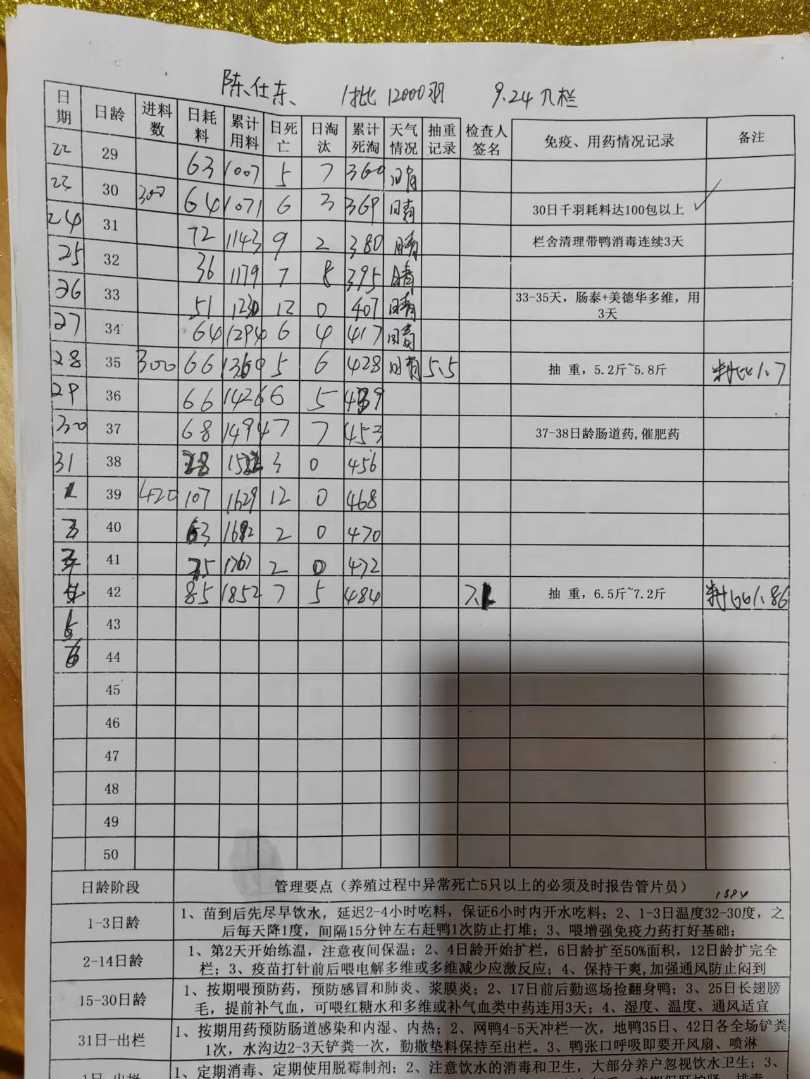 陈仕东 1批 12000羽 9.24入栏
日期 日龄 进料数 日耗料 累计用料 日死亡 日淘汰 累计死淘 天气情况 抽重记录 检查人签名 免疫、用药情况记录 备注
22 29 63 1007 5 7 360 晴
23 30 300 64 1071 6 3 369 晴 30日千羽耗料达100包以上 ✓
24 31 72 1143 9 2 380 晴 栏舍清理带鸭消毒连续3天
25 32 36 1179 7 8 395 晴
26 33 51 1230 12 0 407 晴 33-35天，肠泰+美德华多维，用3天
27 34 64 1294 6 4 417 晴
28 35 300 66 1360 5 6 428 晴 5.5 抽 重，5.2斤~5.8斤 料肉1.7
29 36 66 1426 6 5 439
30 37 68 1494 7 7 453 37-38日龄肠道药,催肥药
31 38 28 1522 3 0 456
1 39 420 107 1629 12 0 468
40 63 1692 2 0 470
41 75 1767 2 0 472
42 85 1852 7 5 484 抽 重，6.5斤~7.2斤 料肉1.86
5 43
6 44
45
46
47
48
49
50
日龄阶段 管理要点（养殖过程中异常死亡5只以上的必须及时报告管片员）
1-3日龄 1、苗到后先尽早饮水，延迟2-4小时吃料，保证6小时内开水吃料；2、1-3日温度32-30度，之
后每天降1度，间隔15分钟左右赶鸭1次防止打堆；3、喂增强免疫力药打好基础；
2-14日龄 1、第2天开始练温，注意夜间保温；2、4日龄开始扩栏，6日龄扩至50%面积，12日龄扩完全
栏；3、疫苗打针前后喂电解多维或多维减少应激反应；4、保持干爽,加强通风防止闷到
15-30日龄 1、按期喂预防药，预防感冒和肺炎、浆膜炎；2、17日前后勤巡场捡翻身鸭；3、25日长翅膀
毛，提前补气血，可喂红糖水和多维或补气血类中药连用3天；4、湿度、温度、通风适宜
31日-出栏 1、按期用药预防肠道感染和内湿、内热；2、网鸭4-5天冲栏一次，地鸭35日、42日各全场铲粪
1次，水沟边2-3天铲粪一次，勤撒垫料保持至出栏。3、鸭张口呼吸即要开风扇、喷淋
1日-出栏 1、定期消毒、定期使用脱霉制剂；2、注意饮水的消毒和卫生，大部分养户忽视饮水卫生；3、